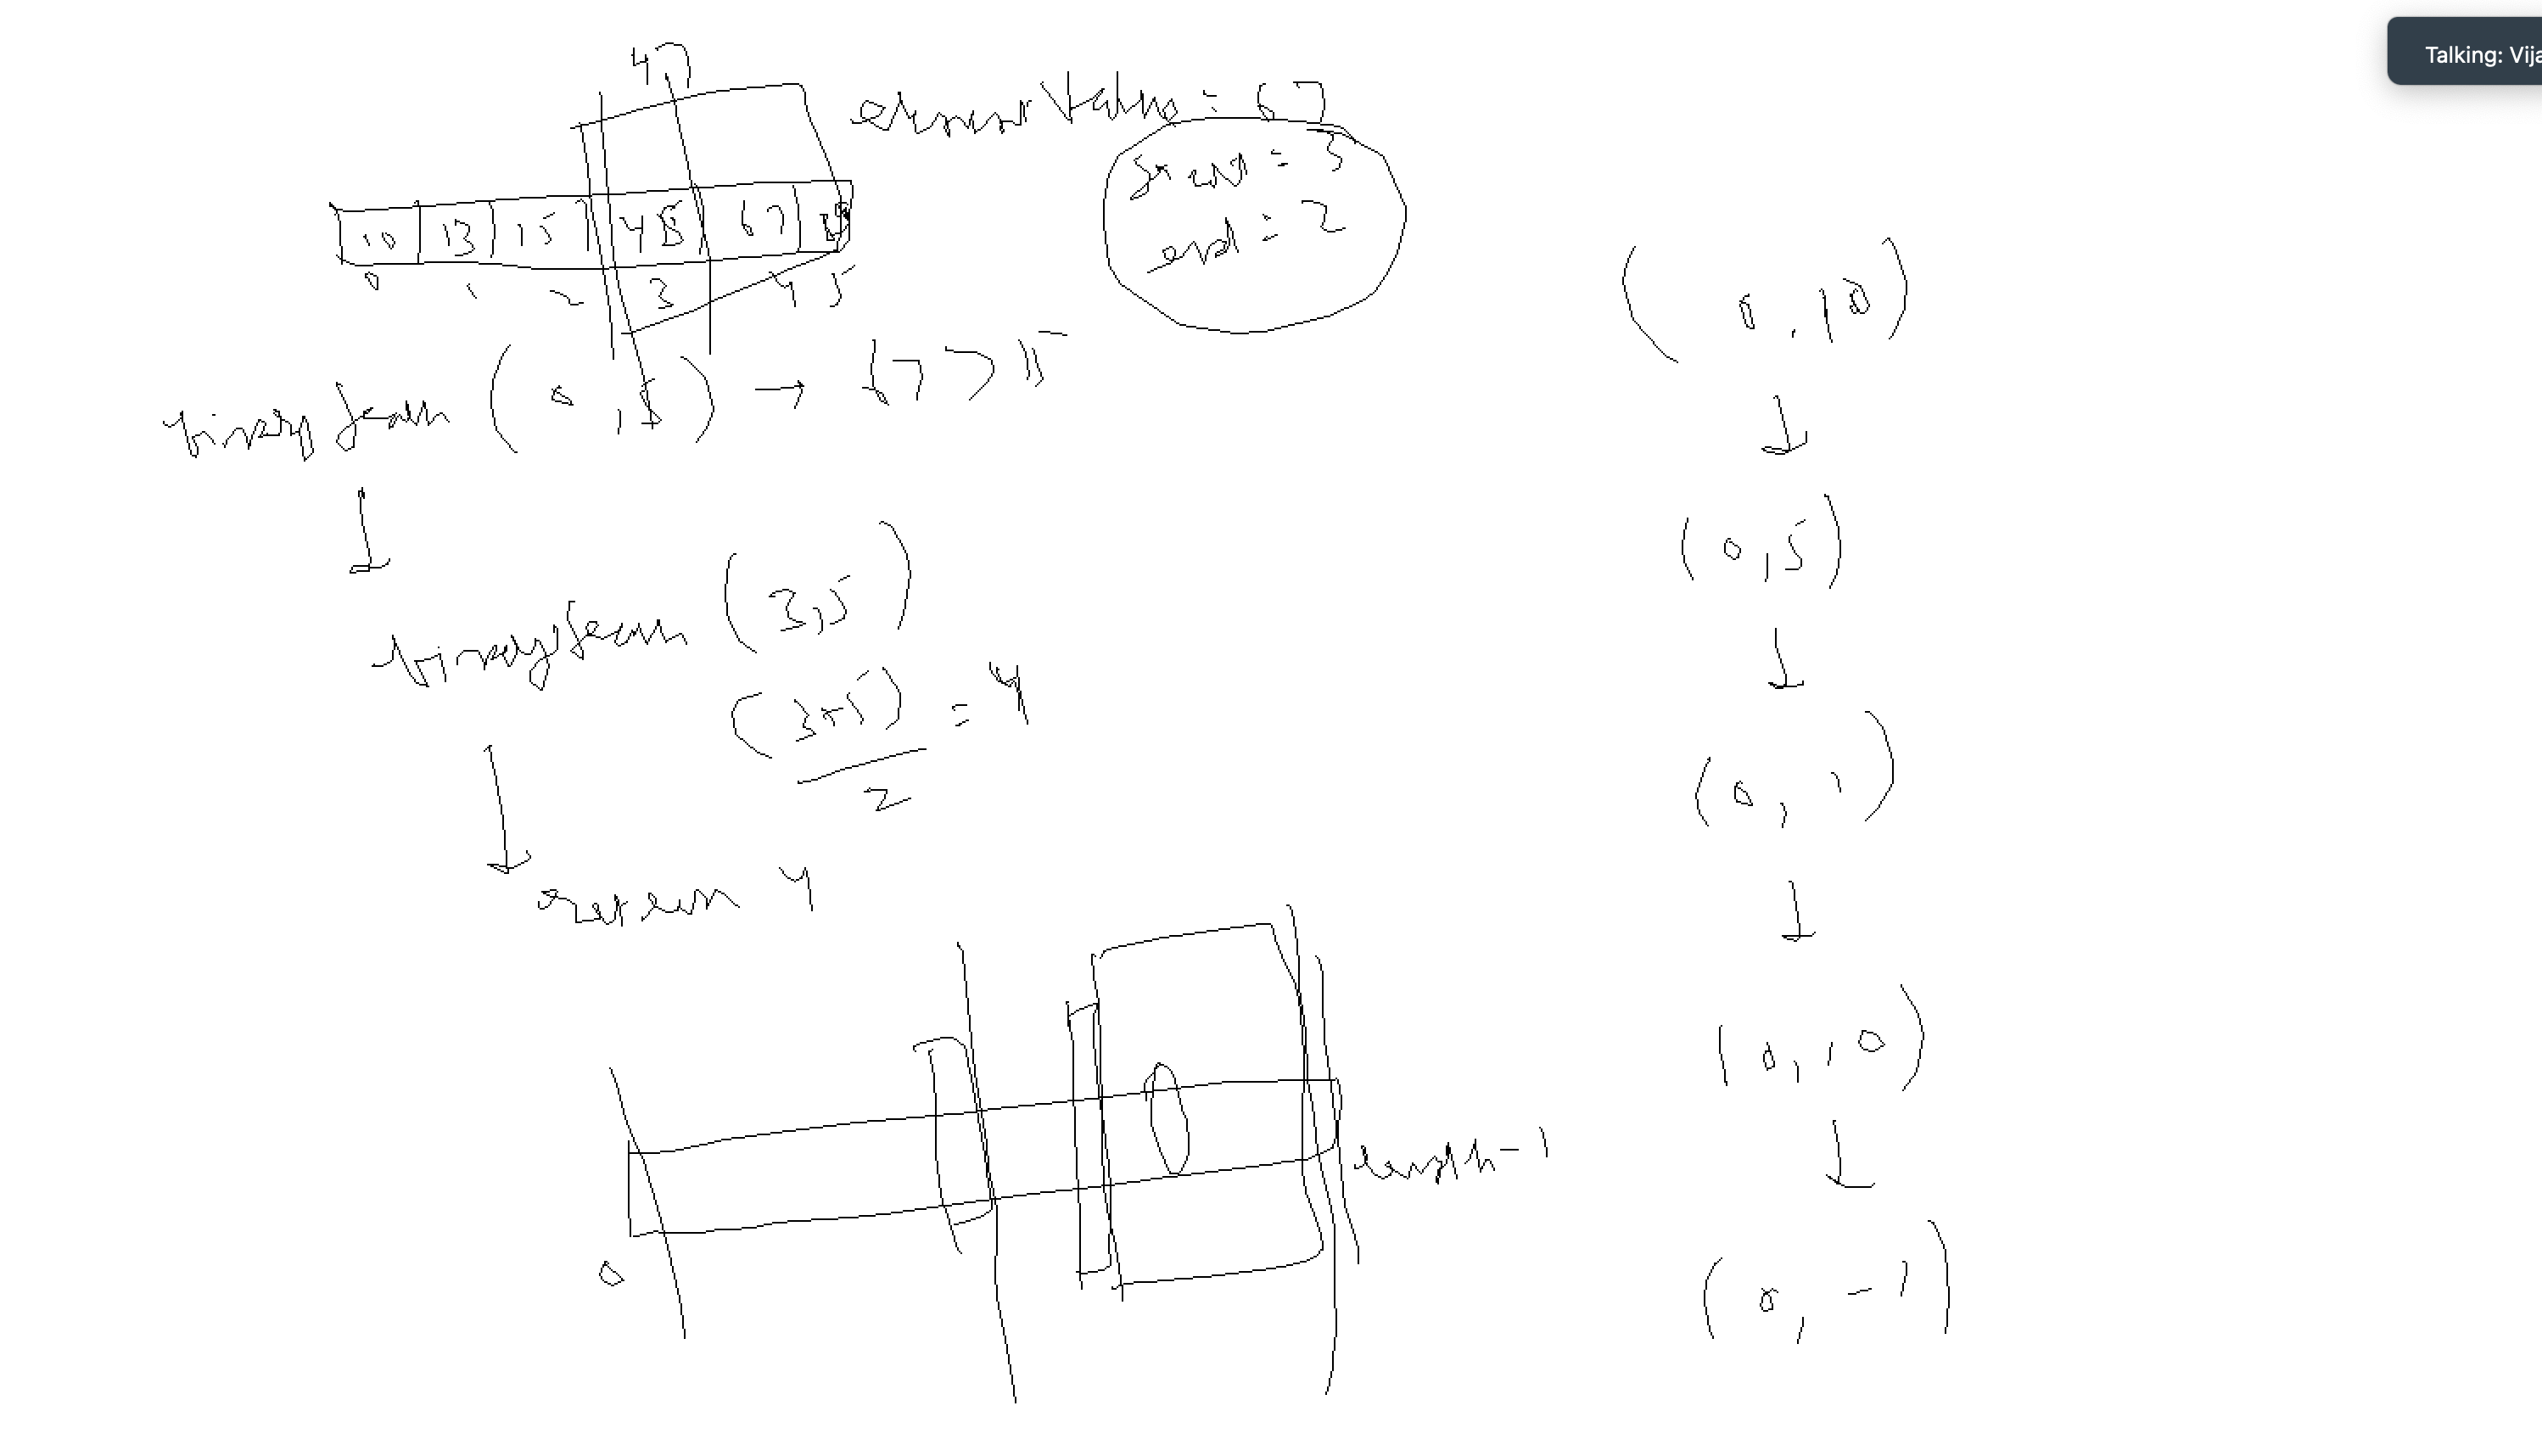 Talking: Vija
47
element Value = 67
start = 3
end = 2
10 13 15 45 67
0 1 2 3 4 5
binary search (0, 5) → 67 > 15
binary search (3, 5)
(3+5) = 4
2
return 4
0
length - 1
(0, 10)
(0, 5)
(0, 1)
(0, 0)
(0, -1)